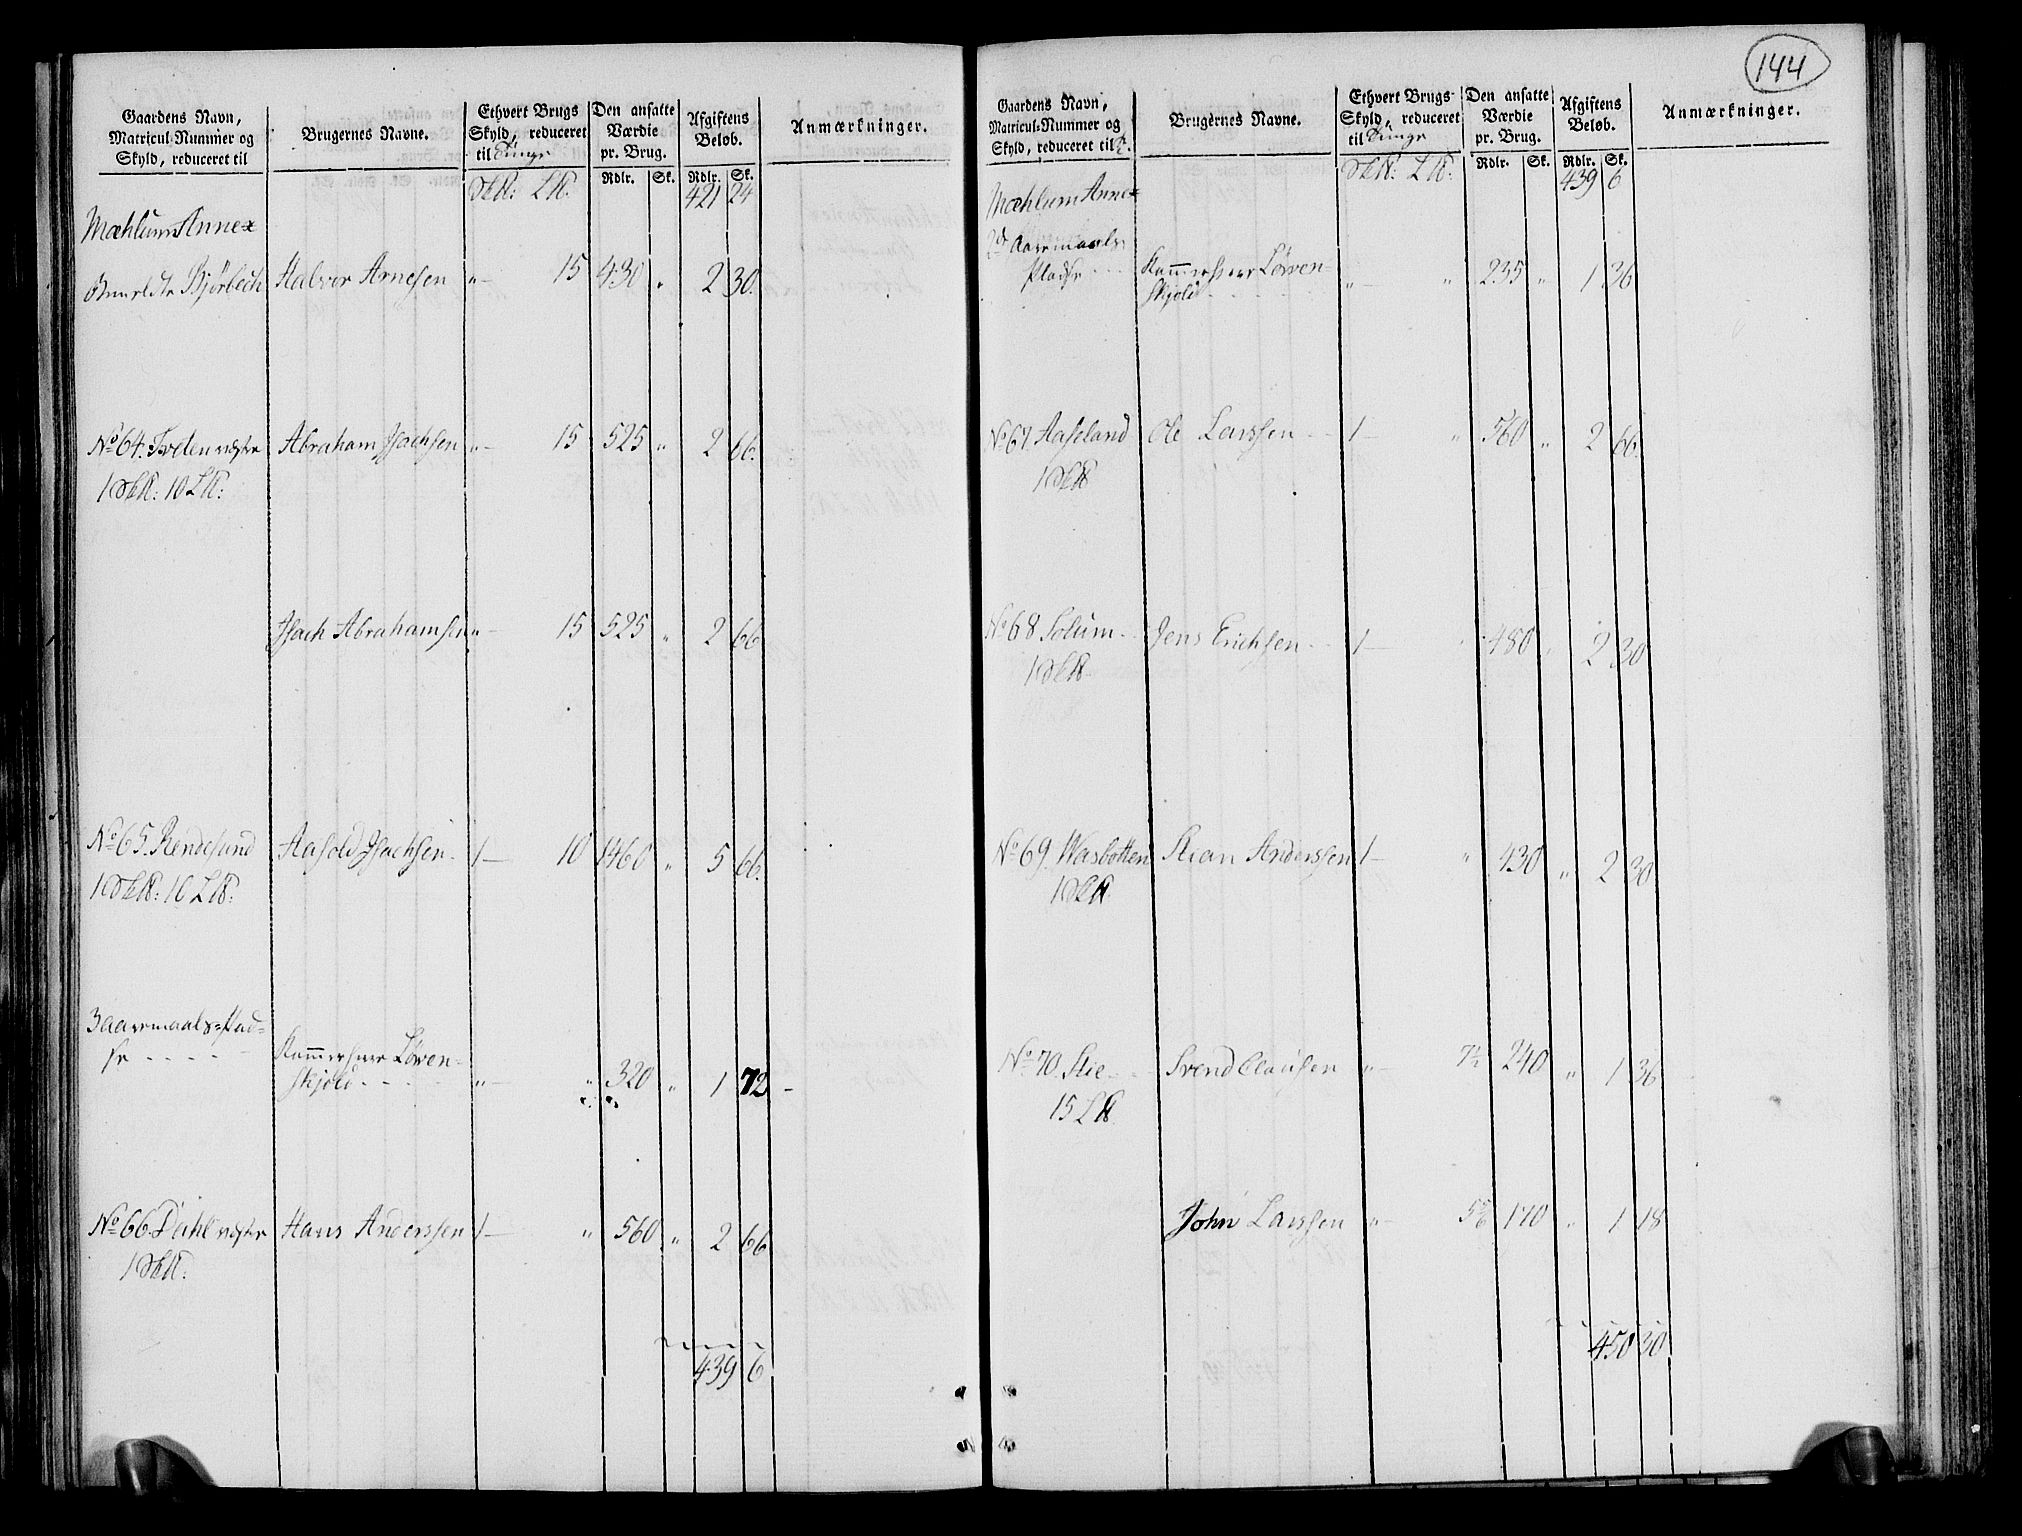 144
Gaardens Navn,
Matricul-Nummer og
Skyld, reduceret til
Brugernes Navne.
Ethvert Brugs
Skyld, reduceret
til Tunge
Den ansatte
Værdie
pr. Brug.
Afgiftens
Beløb.
Anmærkninger.
Rdlr. Sk. Rdlr. Sk.
421 24
Mæhlum Annex
Bjørbech Halvor Arnesen „ 15 430 „ 2 30.
No 64. Tveten vestre Abraham Isachsen „ 15 525 „ 2 66.
1 Sk℔: 10 L℔:
Isach Abrahamsen „ 15 525 „ 2 66
No 65. Rendesund Aasold Isachsen 1 10 1460 „ 5 66.
1 Sk℔: 10 L℔:
3 Aaremaals-Plad-
se - - - - Kammerherr Løven-
skjold - - - - „ „ 320 „ 1 72
No 66. Dæhl vestre Hans Anderssen 1 „ 560 „ 2 66
1 Sk℔:
439 6
Gaardens Navn,
Matricul-Nummer og
Skyld, reduceret til
Brugernes Navne.
Ethvert Brugs
Skyld, reduceret
til Tunge
Den ansatte
Værdie
pr. Brug.
Afgiftens
Beløb.
Anmærkninger.
Rdlr. Sk. Rdlr. Sk.
439 6
Mæhlum Annex
2de Aaremaals-
Pladse - - - Kammerherr Løven-
skjold - - - - „ „ 235 „ 1 36
No 67. Aaseland Ole Larssen - - 1 „ 560 „ 2 66.
1 Sk℔
No 68 Solum - Jens Erichsen - - 1 „ 480 „ 2 30
1 Sk℔
No 69. Wasbotten Stian Anderssen 1 „ 430 „ 2 30
1 Sk℔.
No 70. Stie - - Svend Clausen „ 7½ 240 „ 1 36
15 L℔
John Larssen „ 170 „ 1 18
450 30